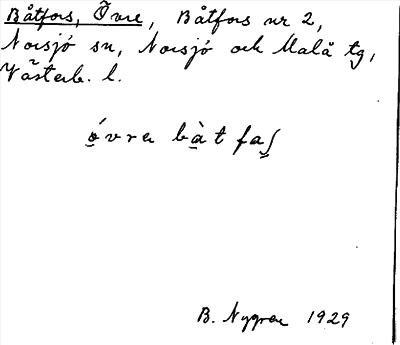 Båtfors, Övre, Båtfors nr 2,
Norsjö sn, Norsjö och Malå tg,
Västerb. l.
B. Nygren 1929